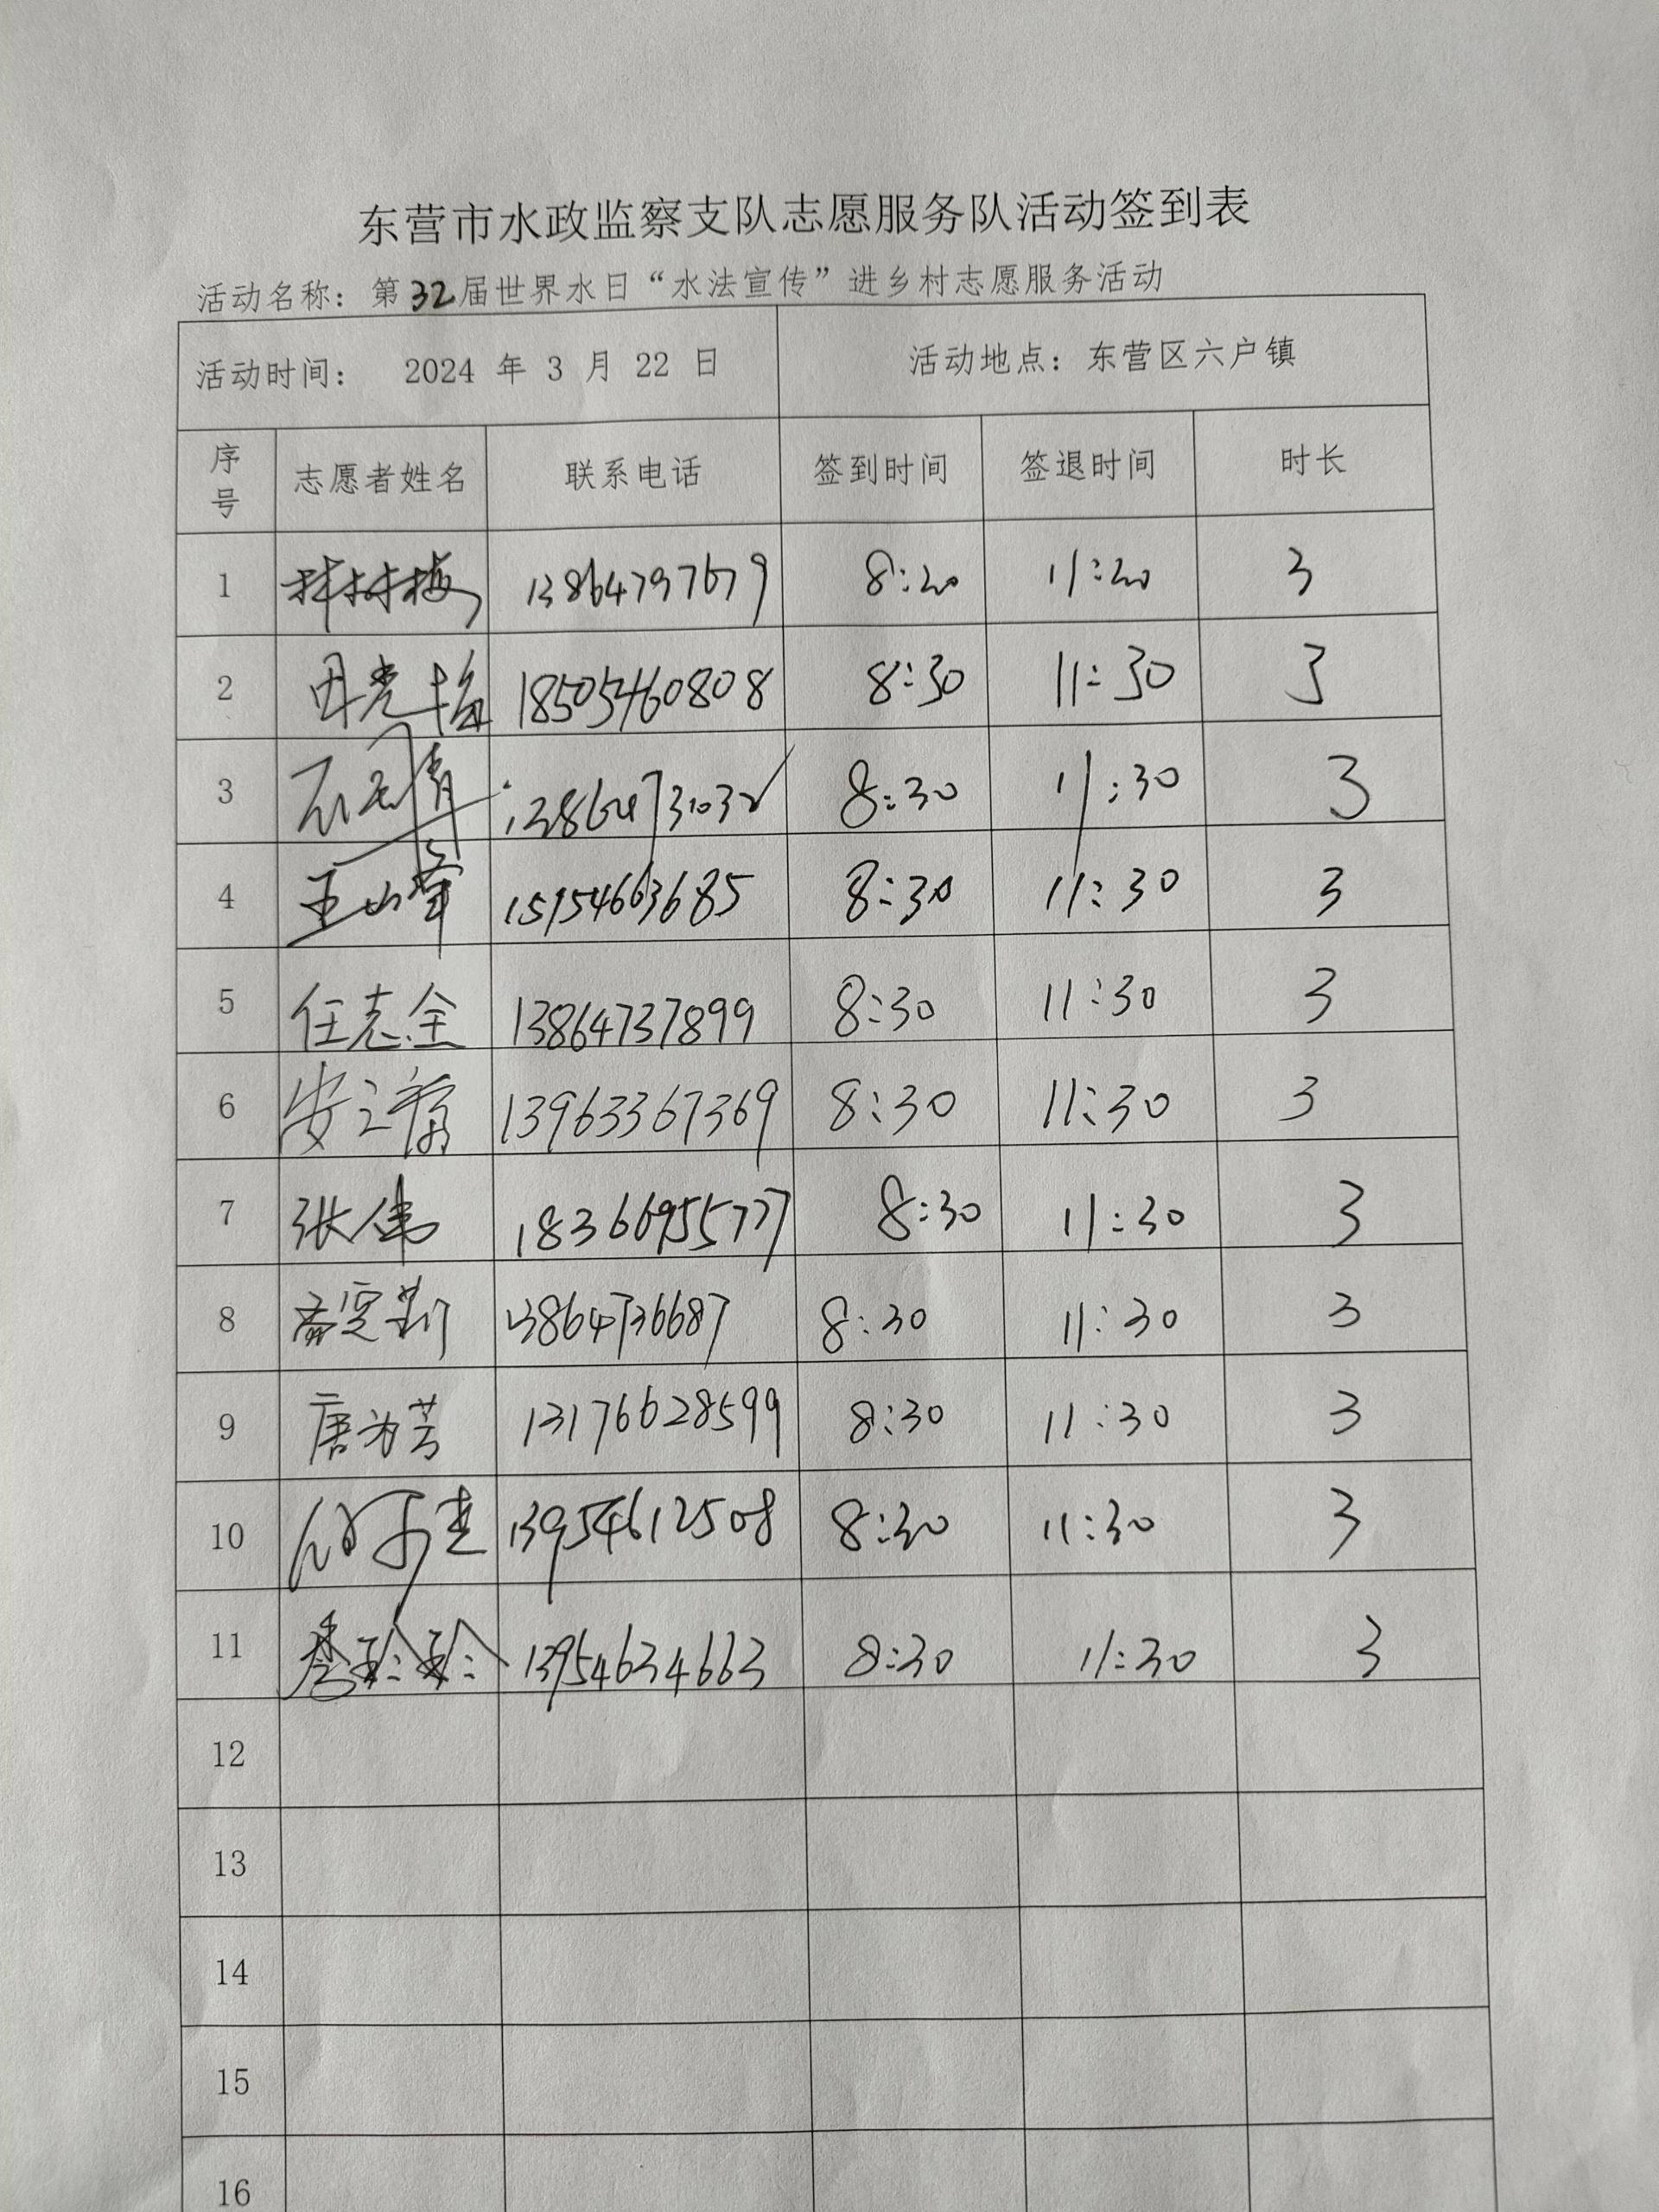 东营市水政监察支队志愿服务队活动签到表
活动名称：第32届世界水日“水法宣传”进乡村志愿服务活动
活动时间： 2024 年 3 月 22 日 活动地点：东营区六户镇
序号 志愿者姓名 联系电话 签到时间 签退时间 时长
1 13864797679 8:20 11:20 3
2 18505460808 8:30 11:30 3
3 8:30 11:30 3
4 王山峰 15954663685 8:30 11:30 3
5 任志全 13864737899 8:30 11:30 3
6 13963367369 8:30 11:30 3
7 张伟 18366955777 8:30 11:30 3
8 13864736687 8:30 11:30 3
9 唐为芳 13176628599 8:30 11:30 3
10 13954612508 8:30 11:30 3
11 李玲玲 13954634663 8:30 11:30 3
12
13
14
15
16